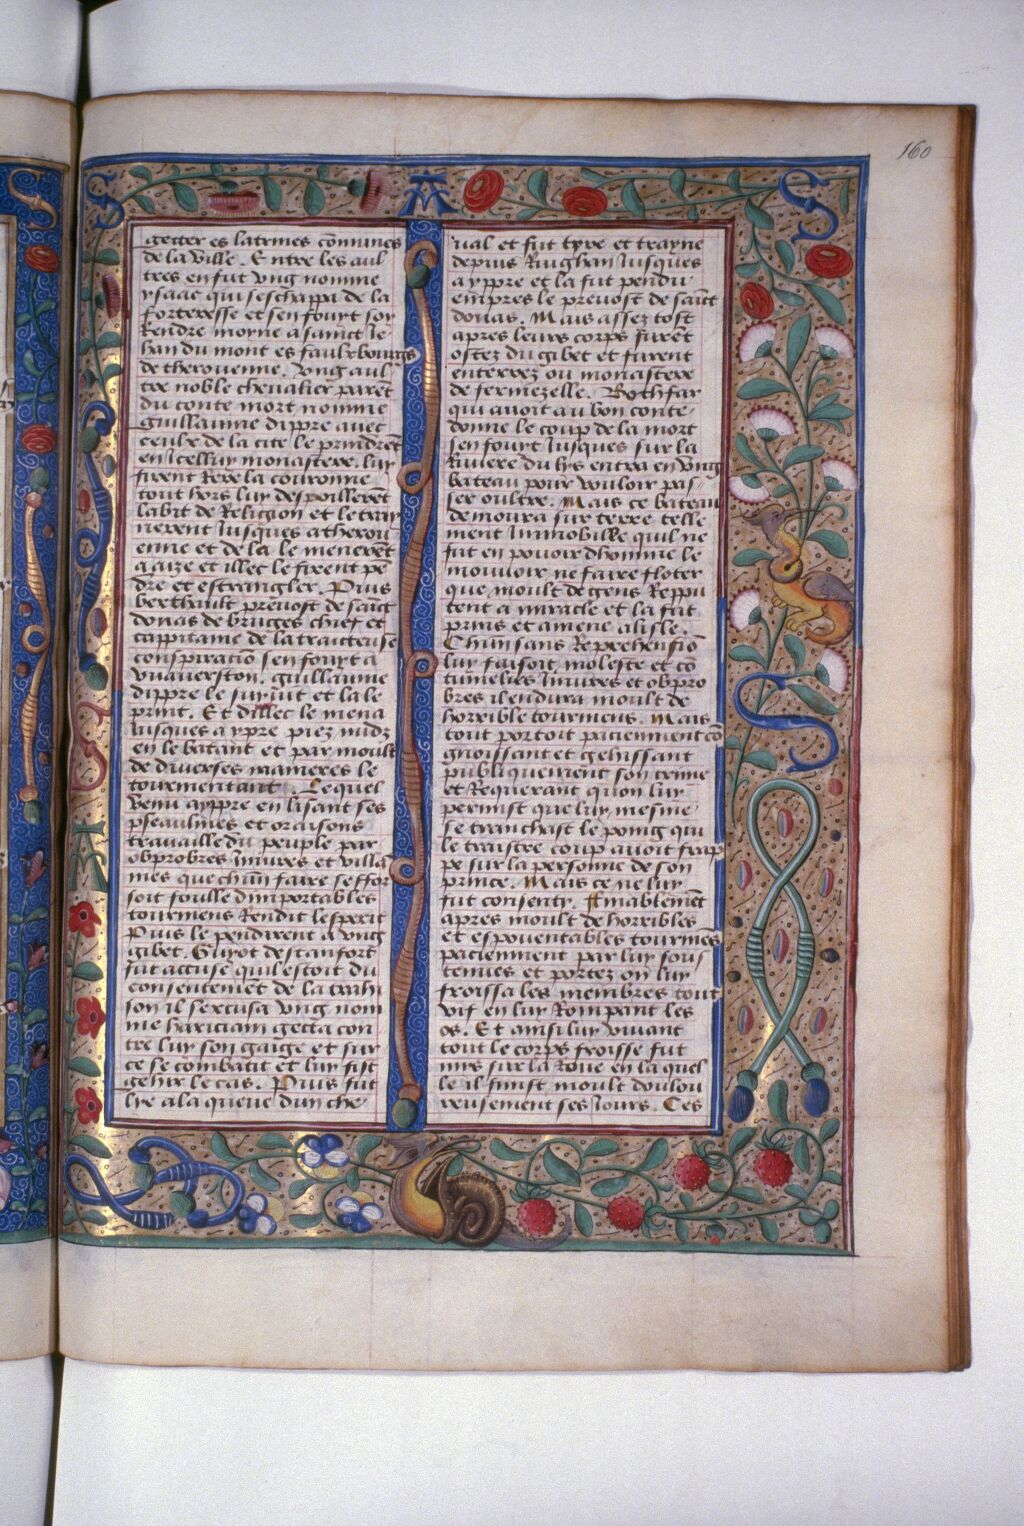 160
getter es latrines cōmunes
de la ville. Entre les aul
tres en fut vng nomme
ysaac qui seschappa de la
forteresse et sen fouyt soy
Rendre moyne a sainct Je
han du mont es faulxbourgs
de therouenne. Vng aul
tre noble cheualier parēt
du conte mort nomme
guillaume dippre auec
ceulx de la cite le prindrēt
en Icelluy monastere. luy
firent Rere la couronne
tout hors luy despoillerēt
labit de Religion et le tray
nerent Jusques a therou
enne et de la le menerēt
a aize et illec le firent pē
dre et estrangler. Puis
berthault preuost de saīct
donas de bruges chief et
cappitaine de la traicteuse
conspiraciō sen fouyt a
vuaverston. guillaume
dippre le suyuit et la le
print. Et dillec le mena
Jusques a ypre piez nudz
en le batant et par moult
de diuerses manieres le
tourmentant. Lequel
venu a yppre en lisant ses
pseaulmes et oraisons
trauaille du peuple par
obprobres Iniures et villa
nies que chūn faire seffor
soit foulle dimportables
tourmens Rendit lesperit
Puis le pendirent a vng
gibet. Guyot destanfort
fut accuse quil estoit du
consentemēt de la trahi
son il sexcusa vng nom
me hariciam getta con
tre luy son gaige et sur
ce se combatit et luy fist
gehir le cas. Puis fut
lye a la queue dun che
ual et fut tyre et trayne
depuis Riughan Jusques
a yppre et la fut pendu
empres le preuost de saīct
donas. Mais assez tost
apres leurs corps furēt
ostez du gibet et furent
enterrez ou monastere
de fermezelle. Bothfar
qui auoit au bon conte
donne le coup de la mort
sen fouyt Jusques sur la
Riuiere du lys entra en vng
bateau pour vouloir pas
ser oultre. Mais ce bateau
demoura sur terre telle
ment Immobille quil ne
fut en pouoir dhomme le
mouuoir ne faire floter
que moult de gens Reppu
tent a miracle et la fut
prins et amene a lisle.
Chūn sans Reprehensiō
luy faisoit moleste et cō
tumelies Iniures et obpro
bres il endura moult de
horrible tourmens. Mais
tout portoit paciemment cō
gnoissant et gehissant
publiquement son crime
et Requerant quon luy
permist que luy mesme
se tranchast le poing qui
le traistre coup auoit frap
pe sur la personne de son
prince. Mais ce ne luy
fut consenty. Finablemēt
apres moult de horribles
et espouentables tourmēs
paciemment par luy sous
tenues et portez on luy
froissa les membres tout
vif en luy Rompant les
os. Et ainsi luy viuant
tout le corps froisse fut
mis sur la Roue en la quel
le il finist moult doulou
reusement ses Jours. Ces